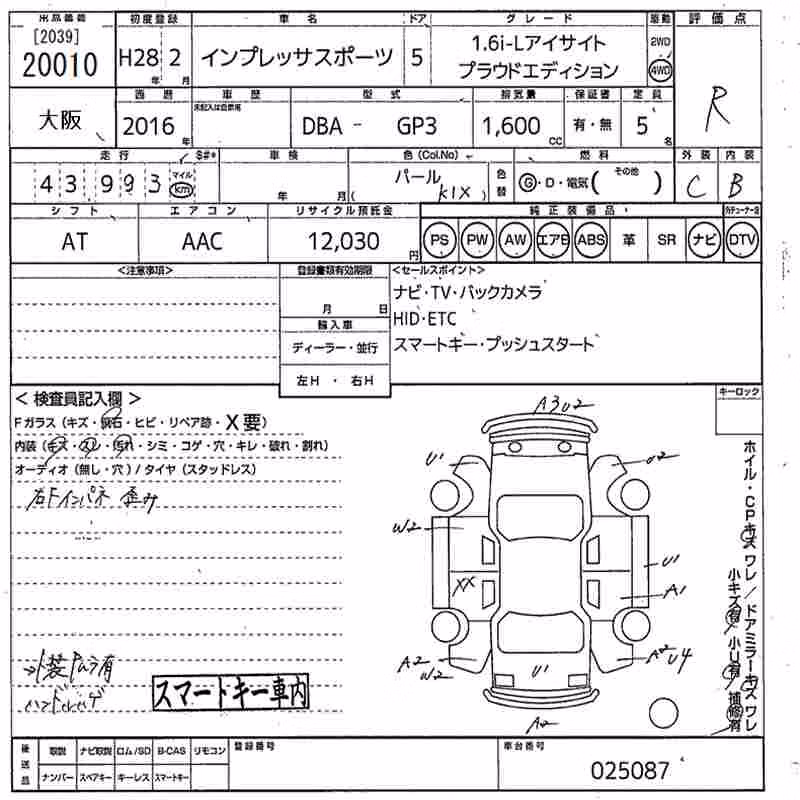 出品番号 初度登録 車名 ドア グレード 駆動 評価点
[2039]
20010 H28年 2月 インプレッサスポーツ 5 1.6i-Lアイサイト 2WD R
プラウドエディション 4WD
西暦 車歴 型式 排気量 保証書 定員
未記入は自家用
大阪 2016年 DBA - GP3 1,600cc 有・無 5名
走行 S#* 車検 色(Col.No) 燃料 外装 内装
43993 マイル km 年 月 パール (K1X) 色替 G・D・電気( その他 ) C B
シフト エアコン リサイクル預託金 純正装備品 外チューナー含
AT AAC 12,030円 PS PW AW エアB ABS 革 SR ナビ DTV
<注意事項> 登録書類有効期限 <セールスポイント>
ナビ・TV・バックカメラ
月 日 HID・ETC
輸入車
ディーラー・並行 スマートキー・プッシュスタート
左H ・ 右H
<検査員記入欄> キーロック
Fガラス(キズ・飛石・ヒビ・リペア跡・X要)
内装(キズ・スレ・汚れ・シミ・コゲ・穴・キレ・破れ・割れ)
オーディオ(無し・穴)/タイヤ(スタッドレス)
右Fインパネ 歪み
A3U2
U1 U2
W2 U1
XX A1
A2 W2 U1 A2 U4
A2
外装Pムラ有
スマートキー車内
ホイル・CPキズ ワレ/ドアミラーキズ ワレ
小キズ有 小U有 補修有
後送品 取説 ナビ取説 ロム/SD B-CAS リモコン 登録番号 車台番号
ナンバー スペアキー キーレス スマートキー 025087